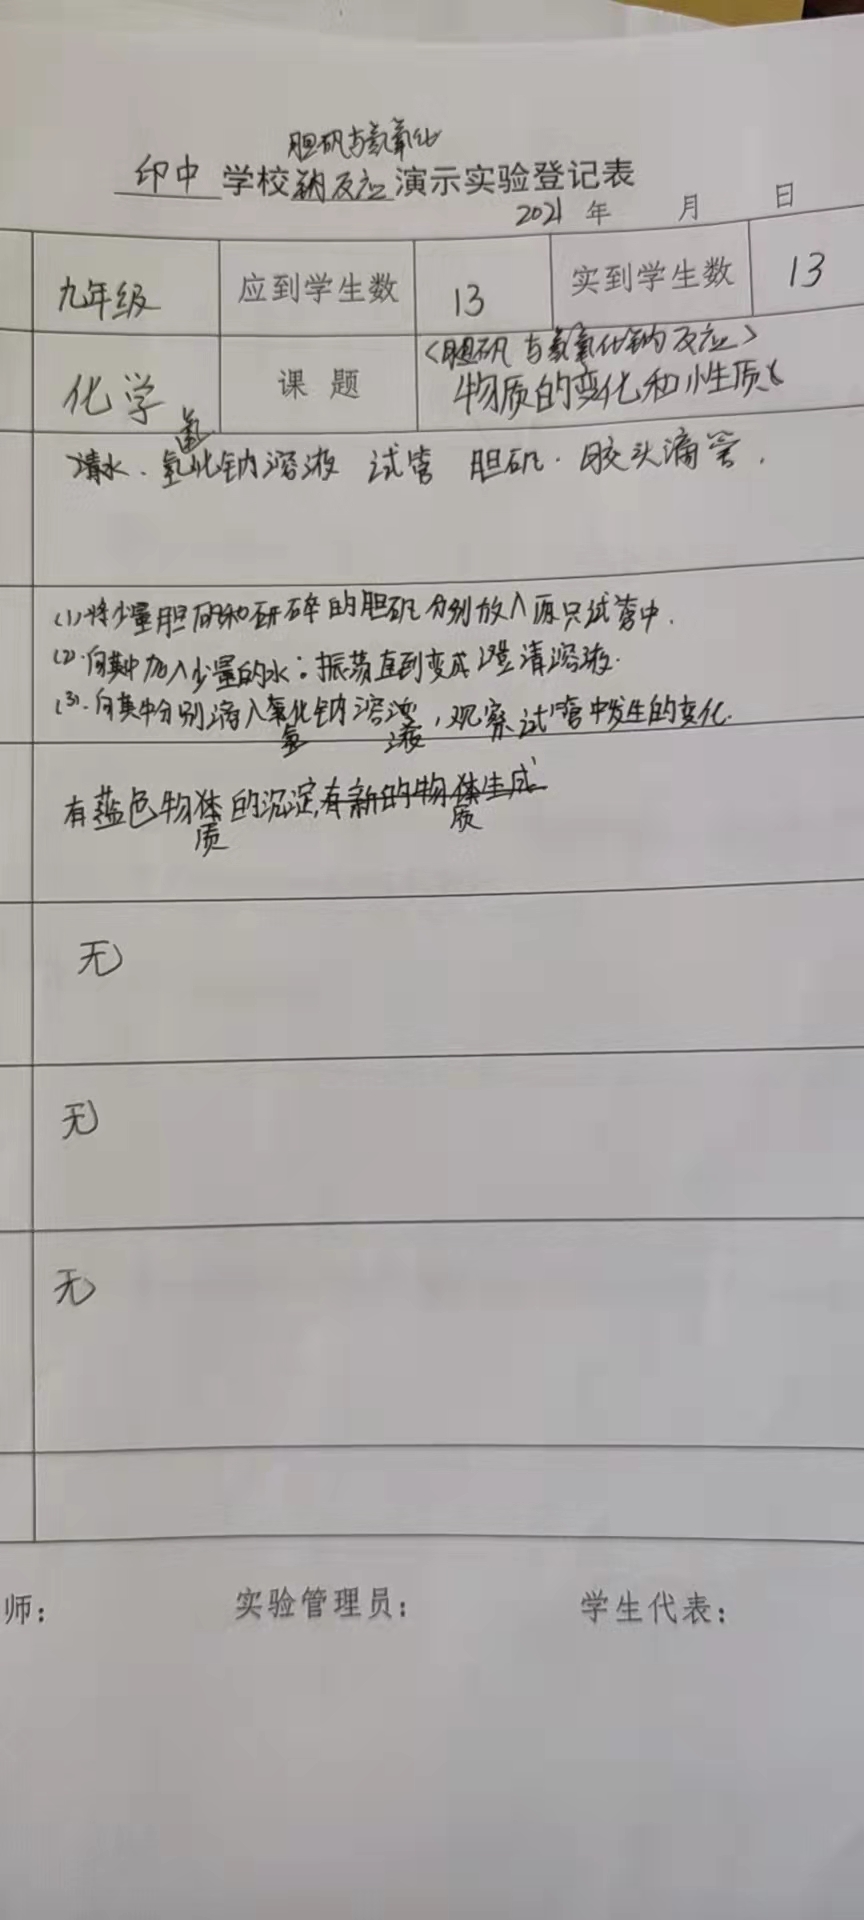 胆矾与氢氧化
印中 学校钠反应演示实验登记表
2021 年 月 日
九年级 应到学生数 13 实到学生数 13
<胆矾与氢氧化钠反应>
化学 课 题 物质的变化和性质
氢
清水、氧化钠溶液 试管 胆矾、胶头滴管.
(1)将少量胆矾和研碎的胆矾分别放入两只试管中.
(2)向其中加入少量的水:振荡直到变成澄清溶液.
(3).向其中分别滴入氧化钠溶液,观察试管中发生的变化.
氢 液
有蓝色物体的沉淀,有新的物体生成
质 质
无
无
无
师: 实验管理员: 学生代表: